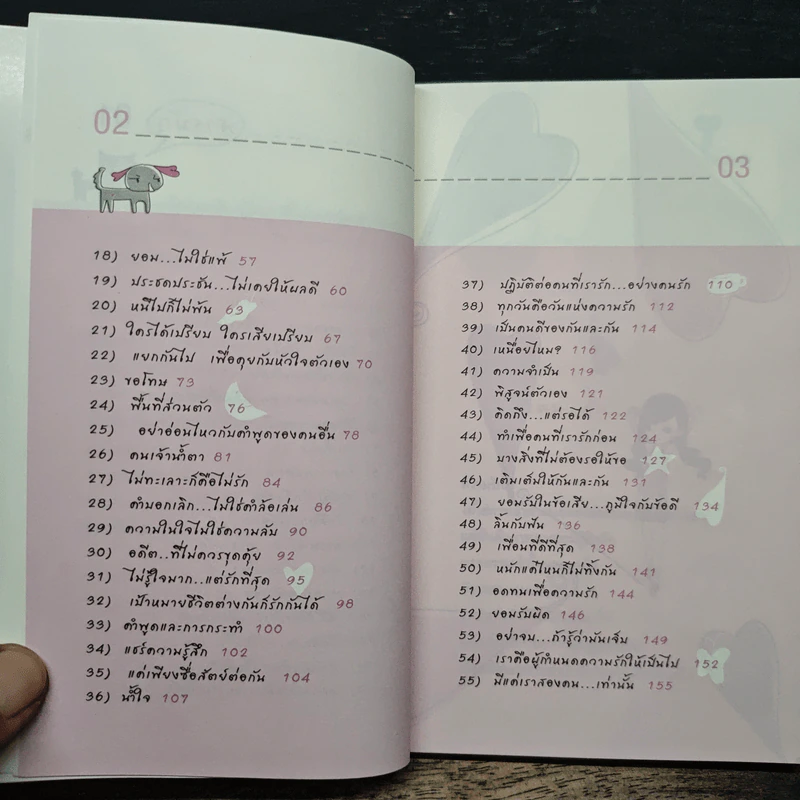 02
18) ยอม...ไม่ใช่แพ้ 57
19) ประชดประชัน...ไม่เคยให้ผลดี 60
20) หนีไปก็ไม่พ้น 63
21) ใครได้เปรียบ ใครเสียเปรียบ 67
22) แยกกันไป เพื่อคุยกับหัวใจตัวเอง 70
23) ขอโทษ 73
24) พื้นที่ส่วนตัว 76
25) อย่าอ่อนไหวกับคำพูดของคนอื่น 78
26) คนเจ้าน้ำตา 81
27) ไม่ทะเลาะก็คือไม่รัก 84
28) คำบอกเลิก...ไม่ใช่คำล้อเล่น 86
29) ความในใจไม่ใช่ความลับ 90
30) อดีต..ที่ไม่ควรขุดคุ้ย 92
31) ไม่รู้ใจมาก...แต่รักที่สุด 95
32) เป้าหมายชีวิตต่างกันก็รักกันได้ 98
33) คำพูดและการกระทำ 100
34) แชร์ความรู้สึก 102
35) แค่เพียงซื่อสัตย์ต่อกัน 104
36) น้ำใจ 107
03
37) ปฏิบัติต่อคนที่เรารัก...อย่างคนรัก 110
38) ทุกวันคือวันแห่งความรัก 112
39) เป็นคนดีของกันและกัน 114
40) เหนื่อยไหม? 116
41) ความจำเป็น 119
42) พิสูจน์ตัวเอง 121
43) คิดถึง...แต่รอได้ 122
44) ทำเพื่อคนที่เรารักก่อน 124
45) บางสิ่งที่ไม่ต้องรอให้ขอ 127
46) เติมเต็มให้กันและกัน 131
47) ยอมรับในข้อเสีย...ภูมิใจกับข้อดี 134
48) ลิ้นกับฟัน 136
49) เพื่อนที่ดีที่สุด 138
50) หนักแค่ไหนก็ไม่ทิ้งกัน 141
51) อดทนเพื่อความรัก 144
52) ยอมรับผิด 146
53) อย่าจบ...ถ้ารู้ว่ามันเจ็บ 149
54) เราคือผู้กำหนดความรักให้เป็นไป 152
55) มีแค่เราสองคน...เท่านั้น 155